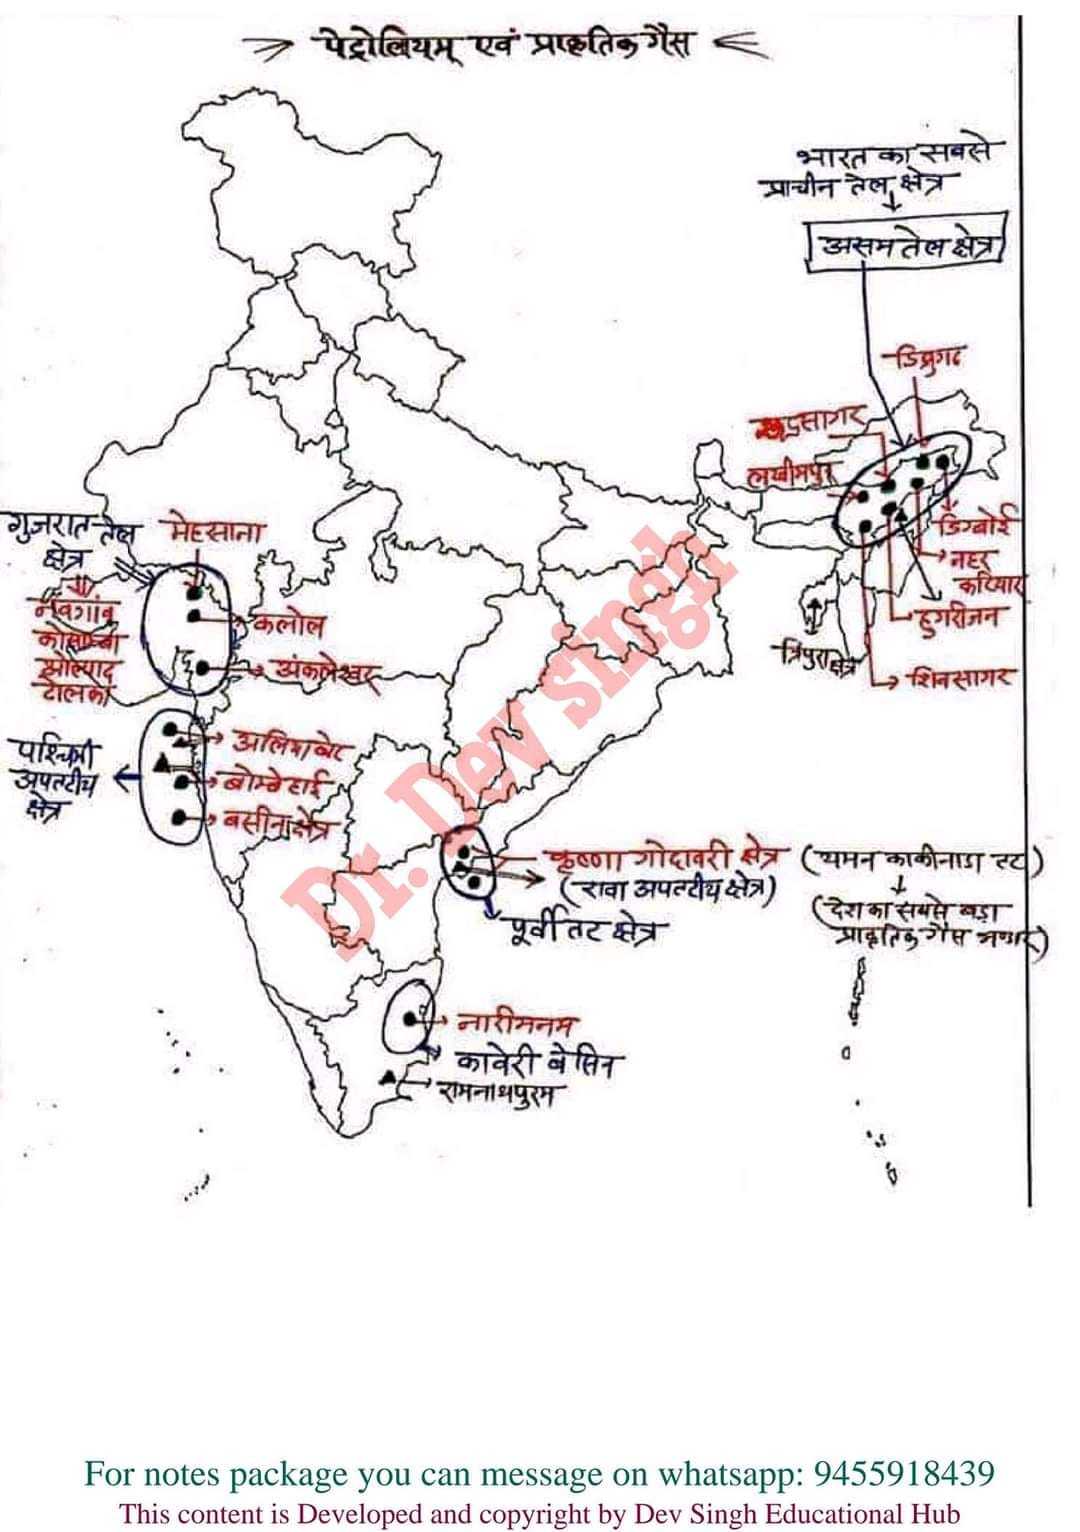 पेट्रोलियम् एवं प्राकृतिक गैस
भारत का सबसे
प्राचीन तेल क्षेत्र
असम तेल क्षेत्र
डिब्रुगढ
रूद्रसागर
लखीमपुर
डिग्बोई
नहर
कटियार
हुगरीजन
शिवसागर
त्रिपुरा क्षेत्र
गुजरात तेल
क्षेत्र
मेहसाना
नवगांव
कोसाम्बा
ढोलका
कलोल
अंकलेश्वर
पश्चिमी
अपतटीय
क्षेत्र
अलियाबेट
बोम्बे हाई
बसीन क्षेत्र
कृष्णा गोदावरी क्षेत्र (यमन काकीनाडा तट)
(रावा अपतटीय क्षेत्र)
(देश का सबसे बड़ा
प्राकृतिक गैस भण्डार)
पूर्वी तट क्षेत्र
नारीमनम
कावेरी बेसिन
रामनाथपुरम
Dr. Dev singh
For notes package you can message on whatsapp: 9455918439
This content is Developed and copyright by Dev Singh Educational Hub